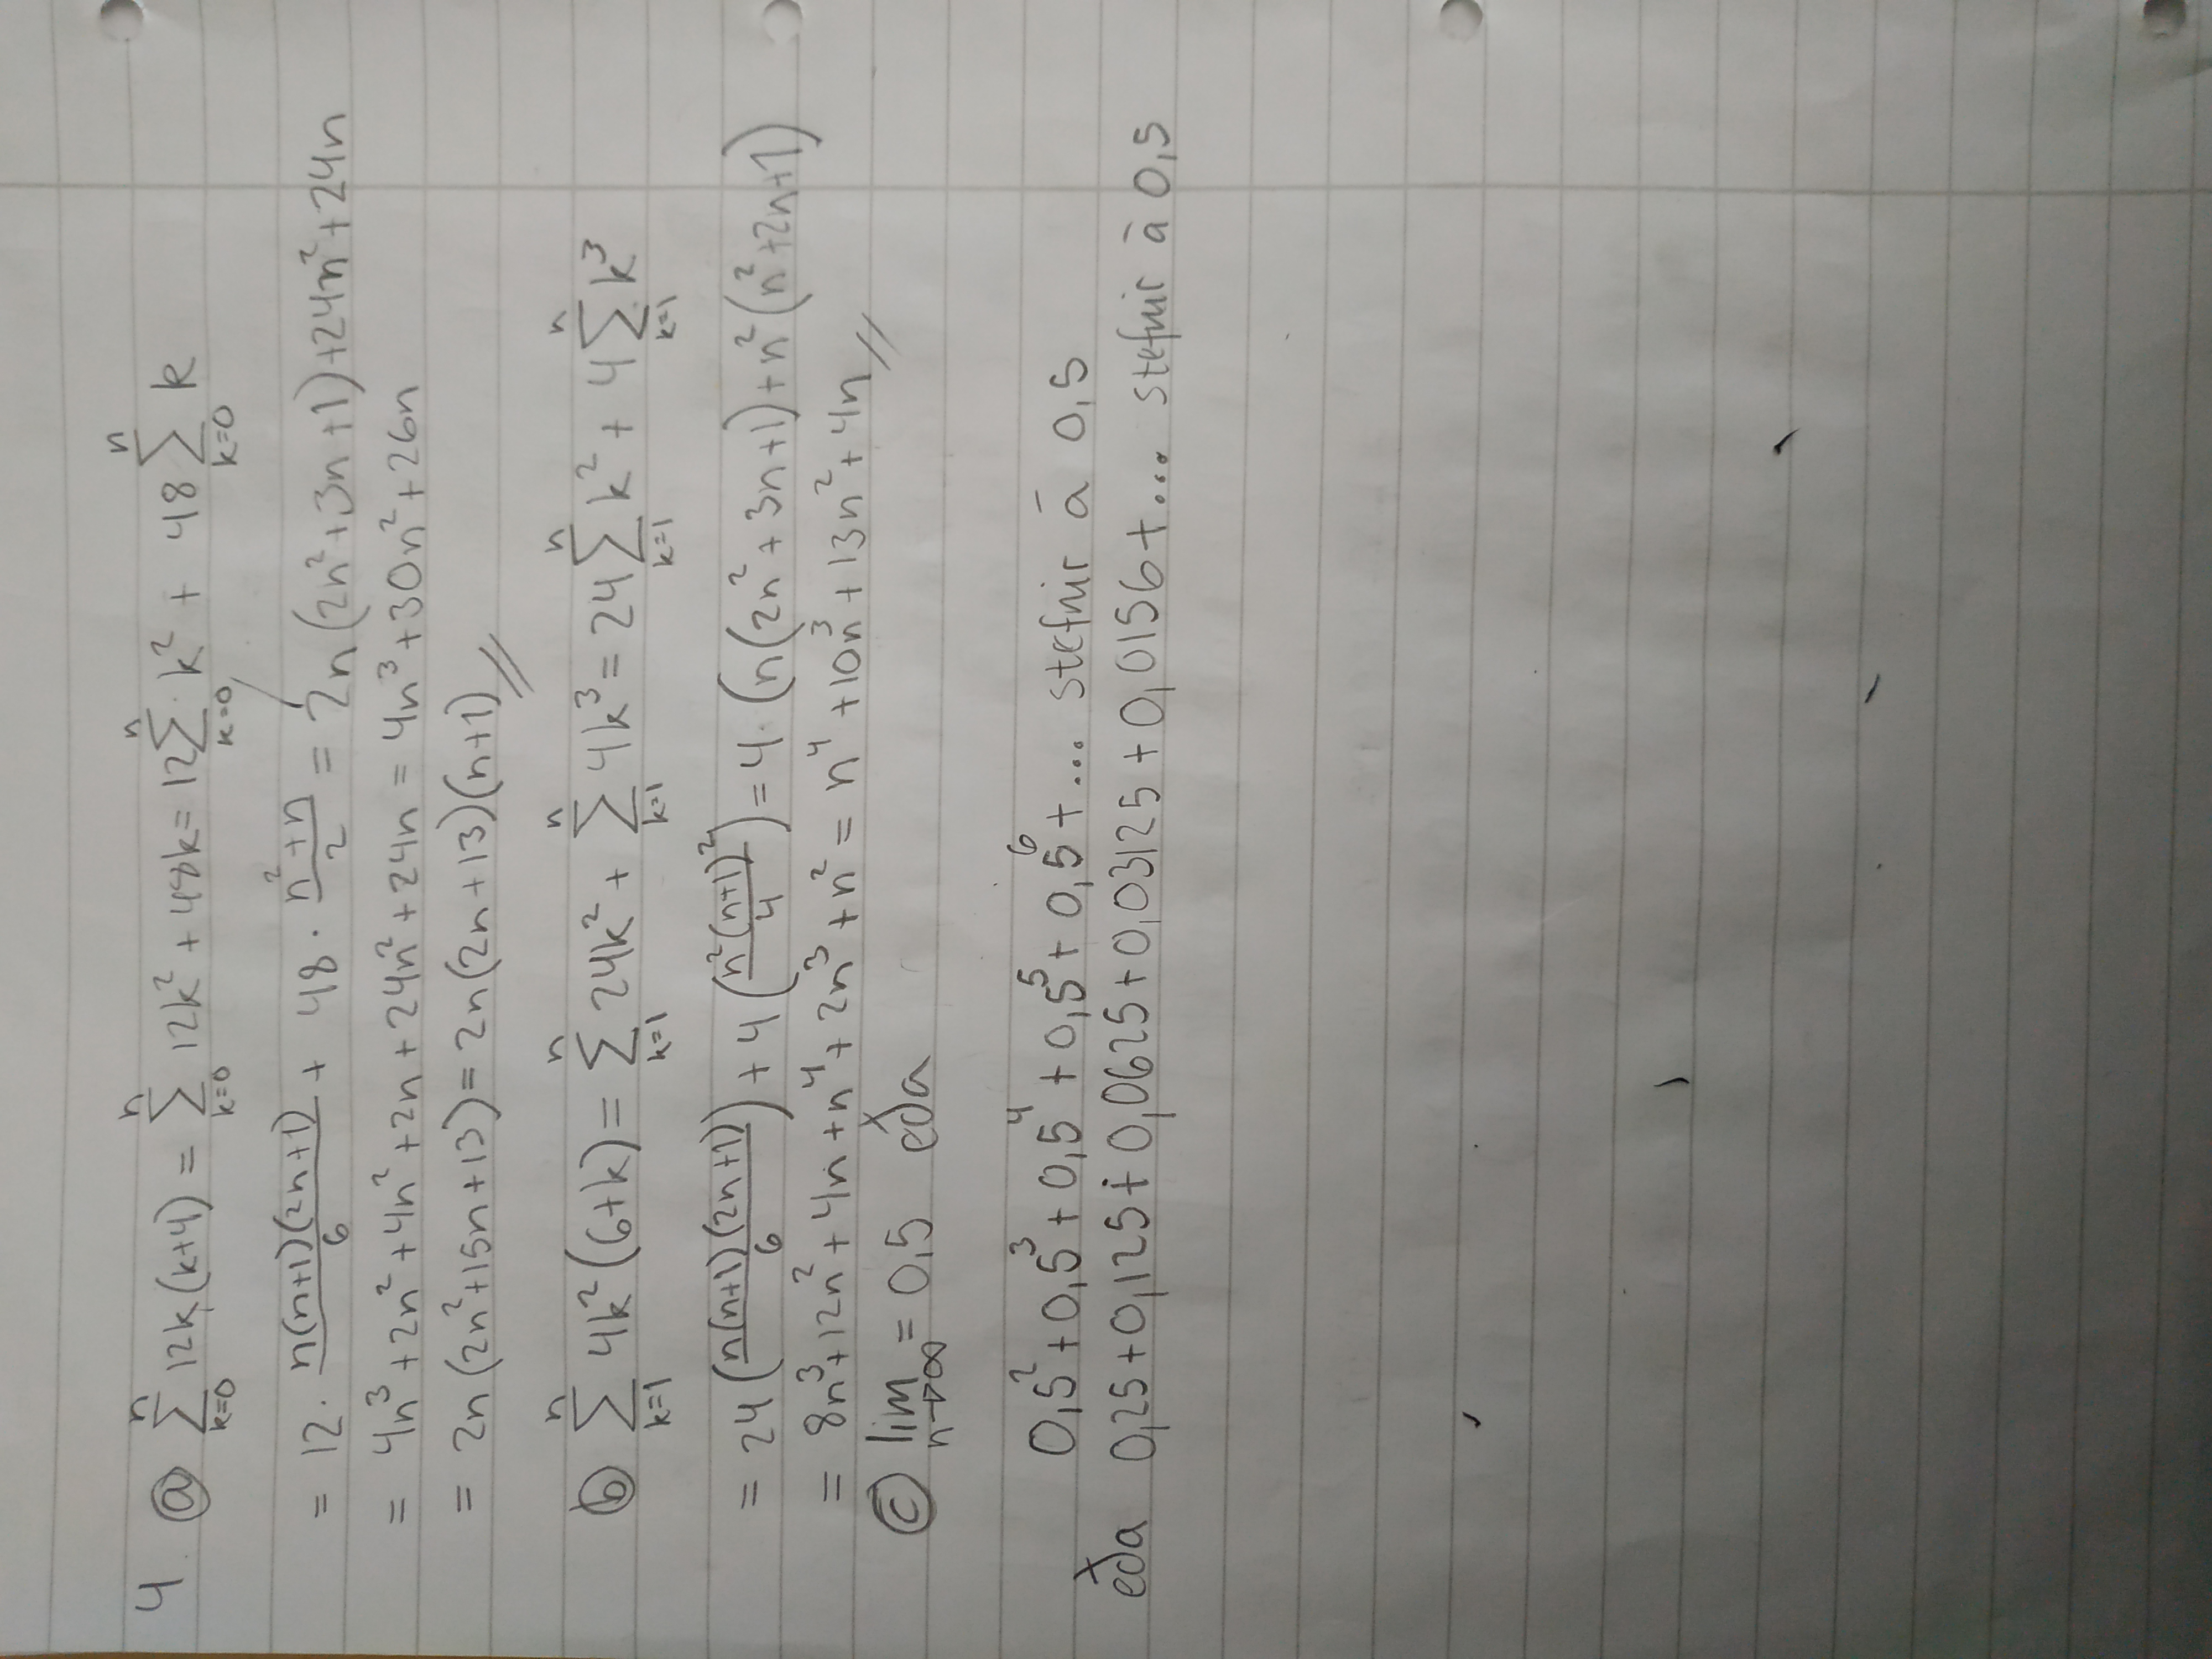 4. ⓐ \sum_{k=0}^{n} 12k(k+4) = \sum_{k=0}^{n} 12k² + 48k = 12 \sum_{k=0}^{n} k² + 48 \sum_{k=0}^{n} k
= 12 · \frac{n(n+1)(2n+1)}{6} + 48 · \frac{n²+n}{2} = 2n(2n²+3n+1)+24n²+24n
= 4n³+2n²+4n²+2n+24n²+24n = 4n³+30n²+26n
= 2n(2n²+15n+13) = 2n(2n+13)(n+1) //
ⓑ \sum_{k=1}^{n} 4k²(6+k) = \sum_{k=1}^{n} 24k² + \sum_{k=1}^{n} 4k³ = 24 \sum_{k=1}^{n} k² + 4 \sum_{k=1}^{n} k³
= 24(\frac{n(n+1)(2n+1)}{6}) + 4(\frac{n²(n+1)²}{4}) = 4·(n(2n²+3n+1)+n²(n²+2n+1)
= 8n³+12n²+4n+n⁴+2n³+n² = n⁴+10n³+13n²+4n //
ⓒ \lim_{n→∞} = 0,5 eða
0,5²+0,5³+0,5⁴+0,5⁵+0,5⁶+... stefnir á 0,5
eða 0,25+0,125+0,0625+0,03125+0,0156+... stefnir á 0,5